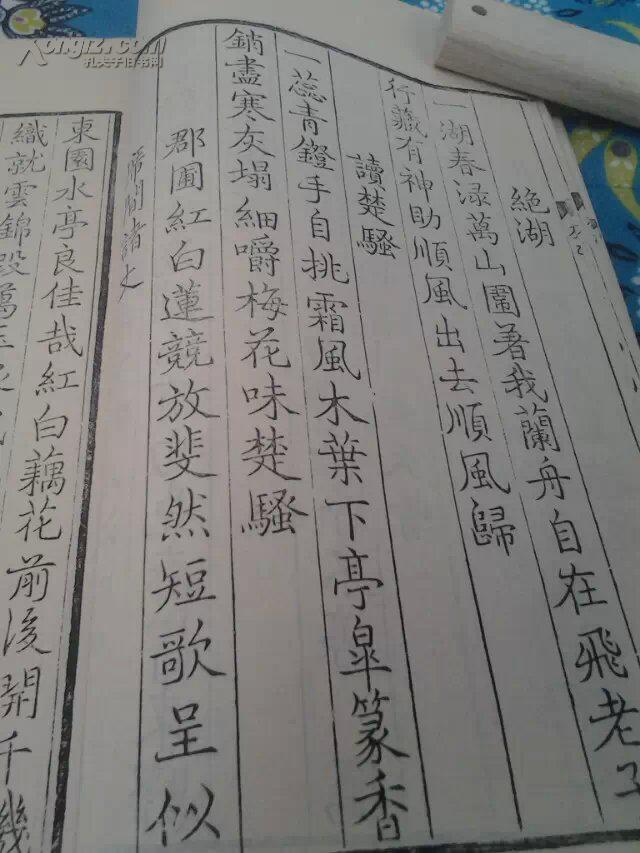 絕湖
一湖春渌萬山圍著我蘭舟自在飛老子
行藏有神助順風出去順風歸
讀楚騷
一蕊青鐙手自挑霜風木葉下亭皐篆香
銷盡寒灰塌細嚼梅花味楚騷
郡圃紅白蓮競放斐然短歌呈似
席間諸丈
東園水亭良佳哉紅白藕花前後開千幾
織就雲錦段萬玉
孔夫子旧书网